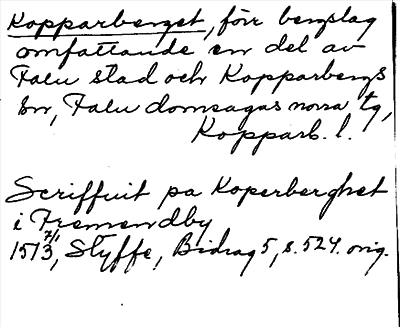 Kopparberget, förr bergslag
omfattande en del av
Falu stad och Kopparbergs
sn, Falu domsagas norra tg,
Kopparb. l.
Scriffuit pa Koperberghet
i Fremendby
1513 7/1, Styffe, Bidrag 5, s. 524. orig.